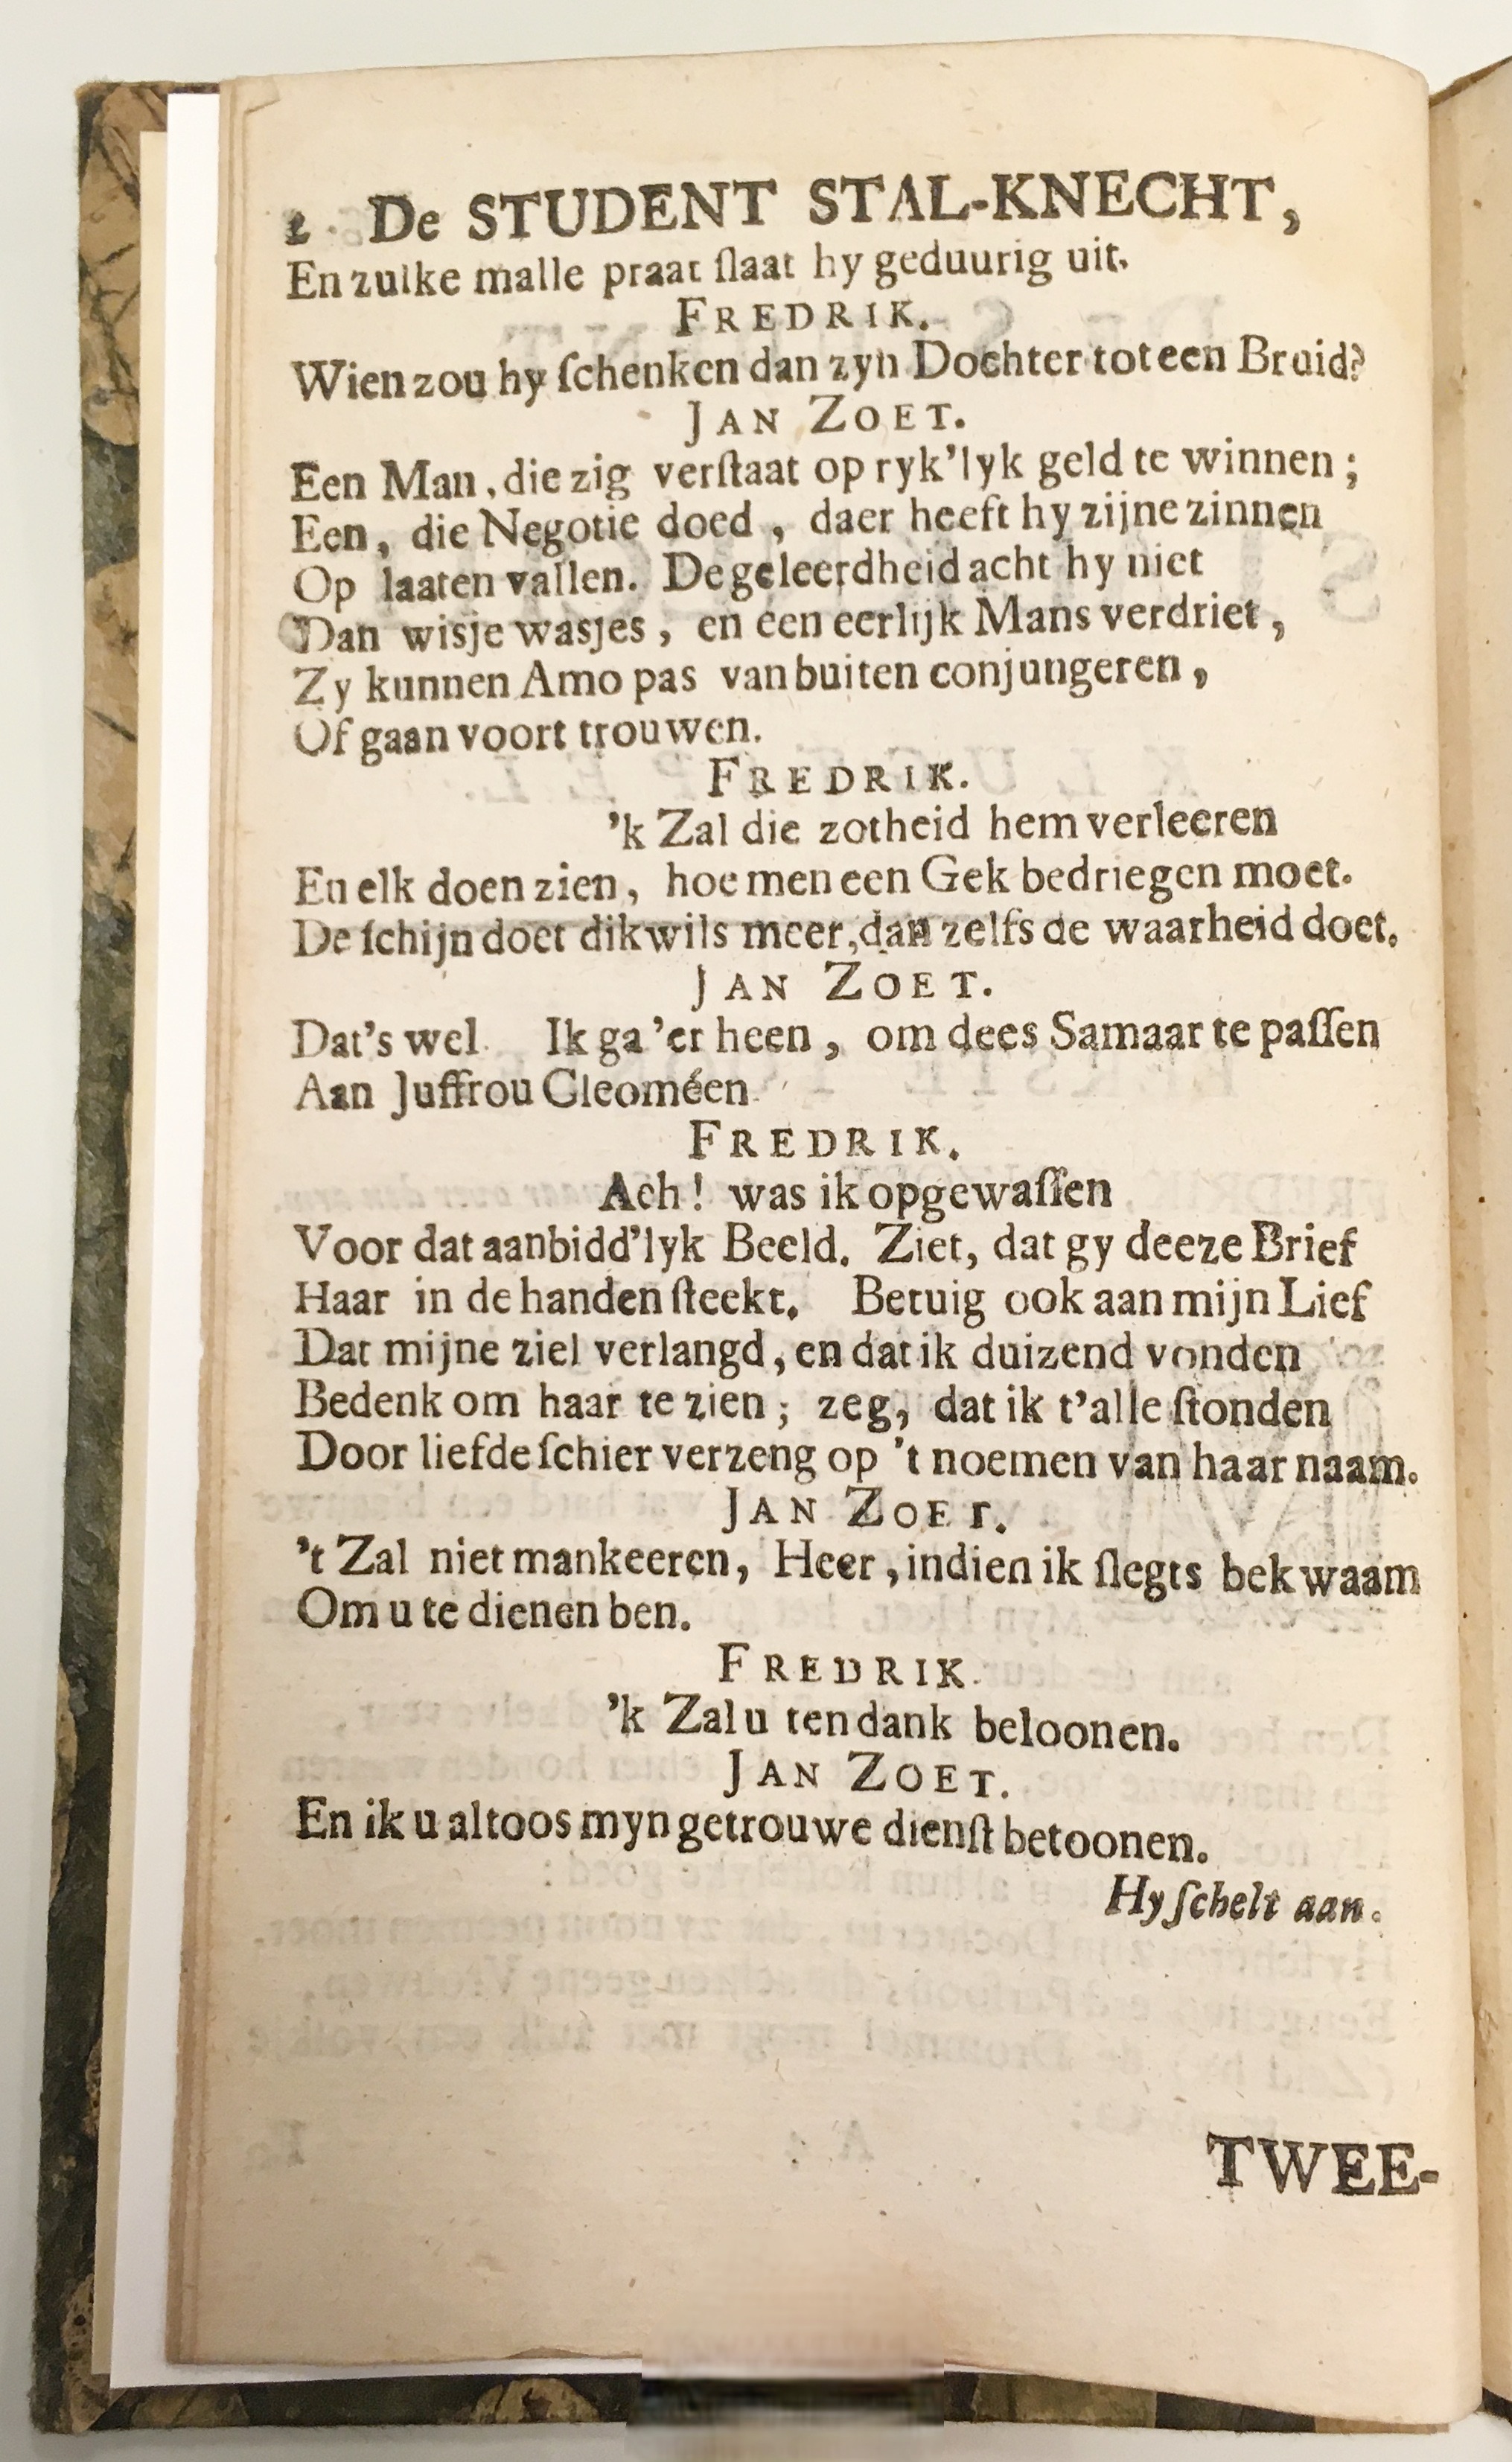 2 De STUDENT STAL-KNECHT,
En zulke malle praat ſlaat hy geduurig uit.
FREDRIK.
Wien zou hy ſchenken dan zyn Dochter tot een Bruid?
JAN ZOET.
Een Man, die zig verſtaat op ryk'lyk geld te winnen;
Een, die Negotie doed, daer heeft hy zijne zinnen
Op laaten vallen. De geleerdheid acht hy niet
Dan wisje wasjes, en een eerlijk Mans verdriet,
Zy kunnen Amo pas van buiten conjungeren,
Of gaan voort trouwen.
FREDRIK.
'k Zal die zotheid hem verleeren
En elk doen zien, hoe men een Gek bedriegen moet.
De ſchijn doet dikwils meer, dan zelfs de waarheid doet.
JAN ZOET.
Dat's wel. Ik ga 'er heen, om dees Samaar te paſſen
Aan Juffrou Cleoméen.
FREDRIK.
Ach! was ik opgewaſſen
Voor dat aanbidd'lyk Beeld. Ziet, dat gy deeze Brief
Haar in de handen ſteekt. Betuig ook aan mijn Lief
Dat mijne ziel verlangd, en dat ik duizend vonden
Bedenk om haar te zien; zeg, dat ik t'alle ſtonden
Door liefde ſchier verzeng op 't noemen van haar naam.
JAN ZOET.
't Zal niet mankeeren, Heer, indien ik ſlegts bekwaam
Om u te dienen ben.
FREDRIK.
'k Zal u ten dank beloonen.
JAN ZOET.
En ik u altoos myn getrouwe dienſt betoonen.
Hy ſchelt aan.
TWEE-